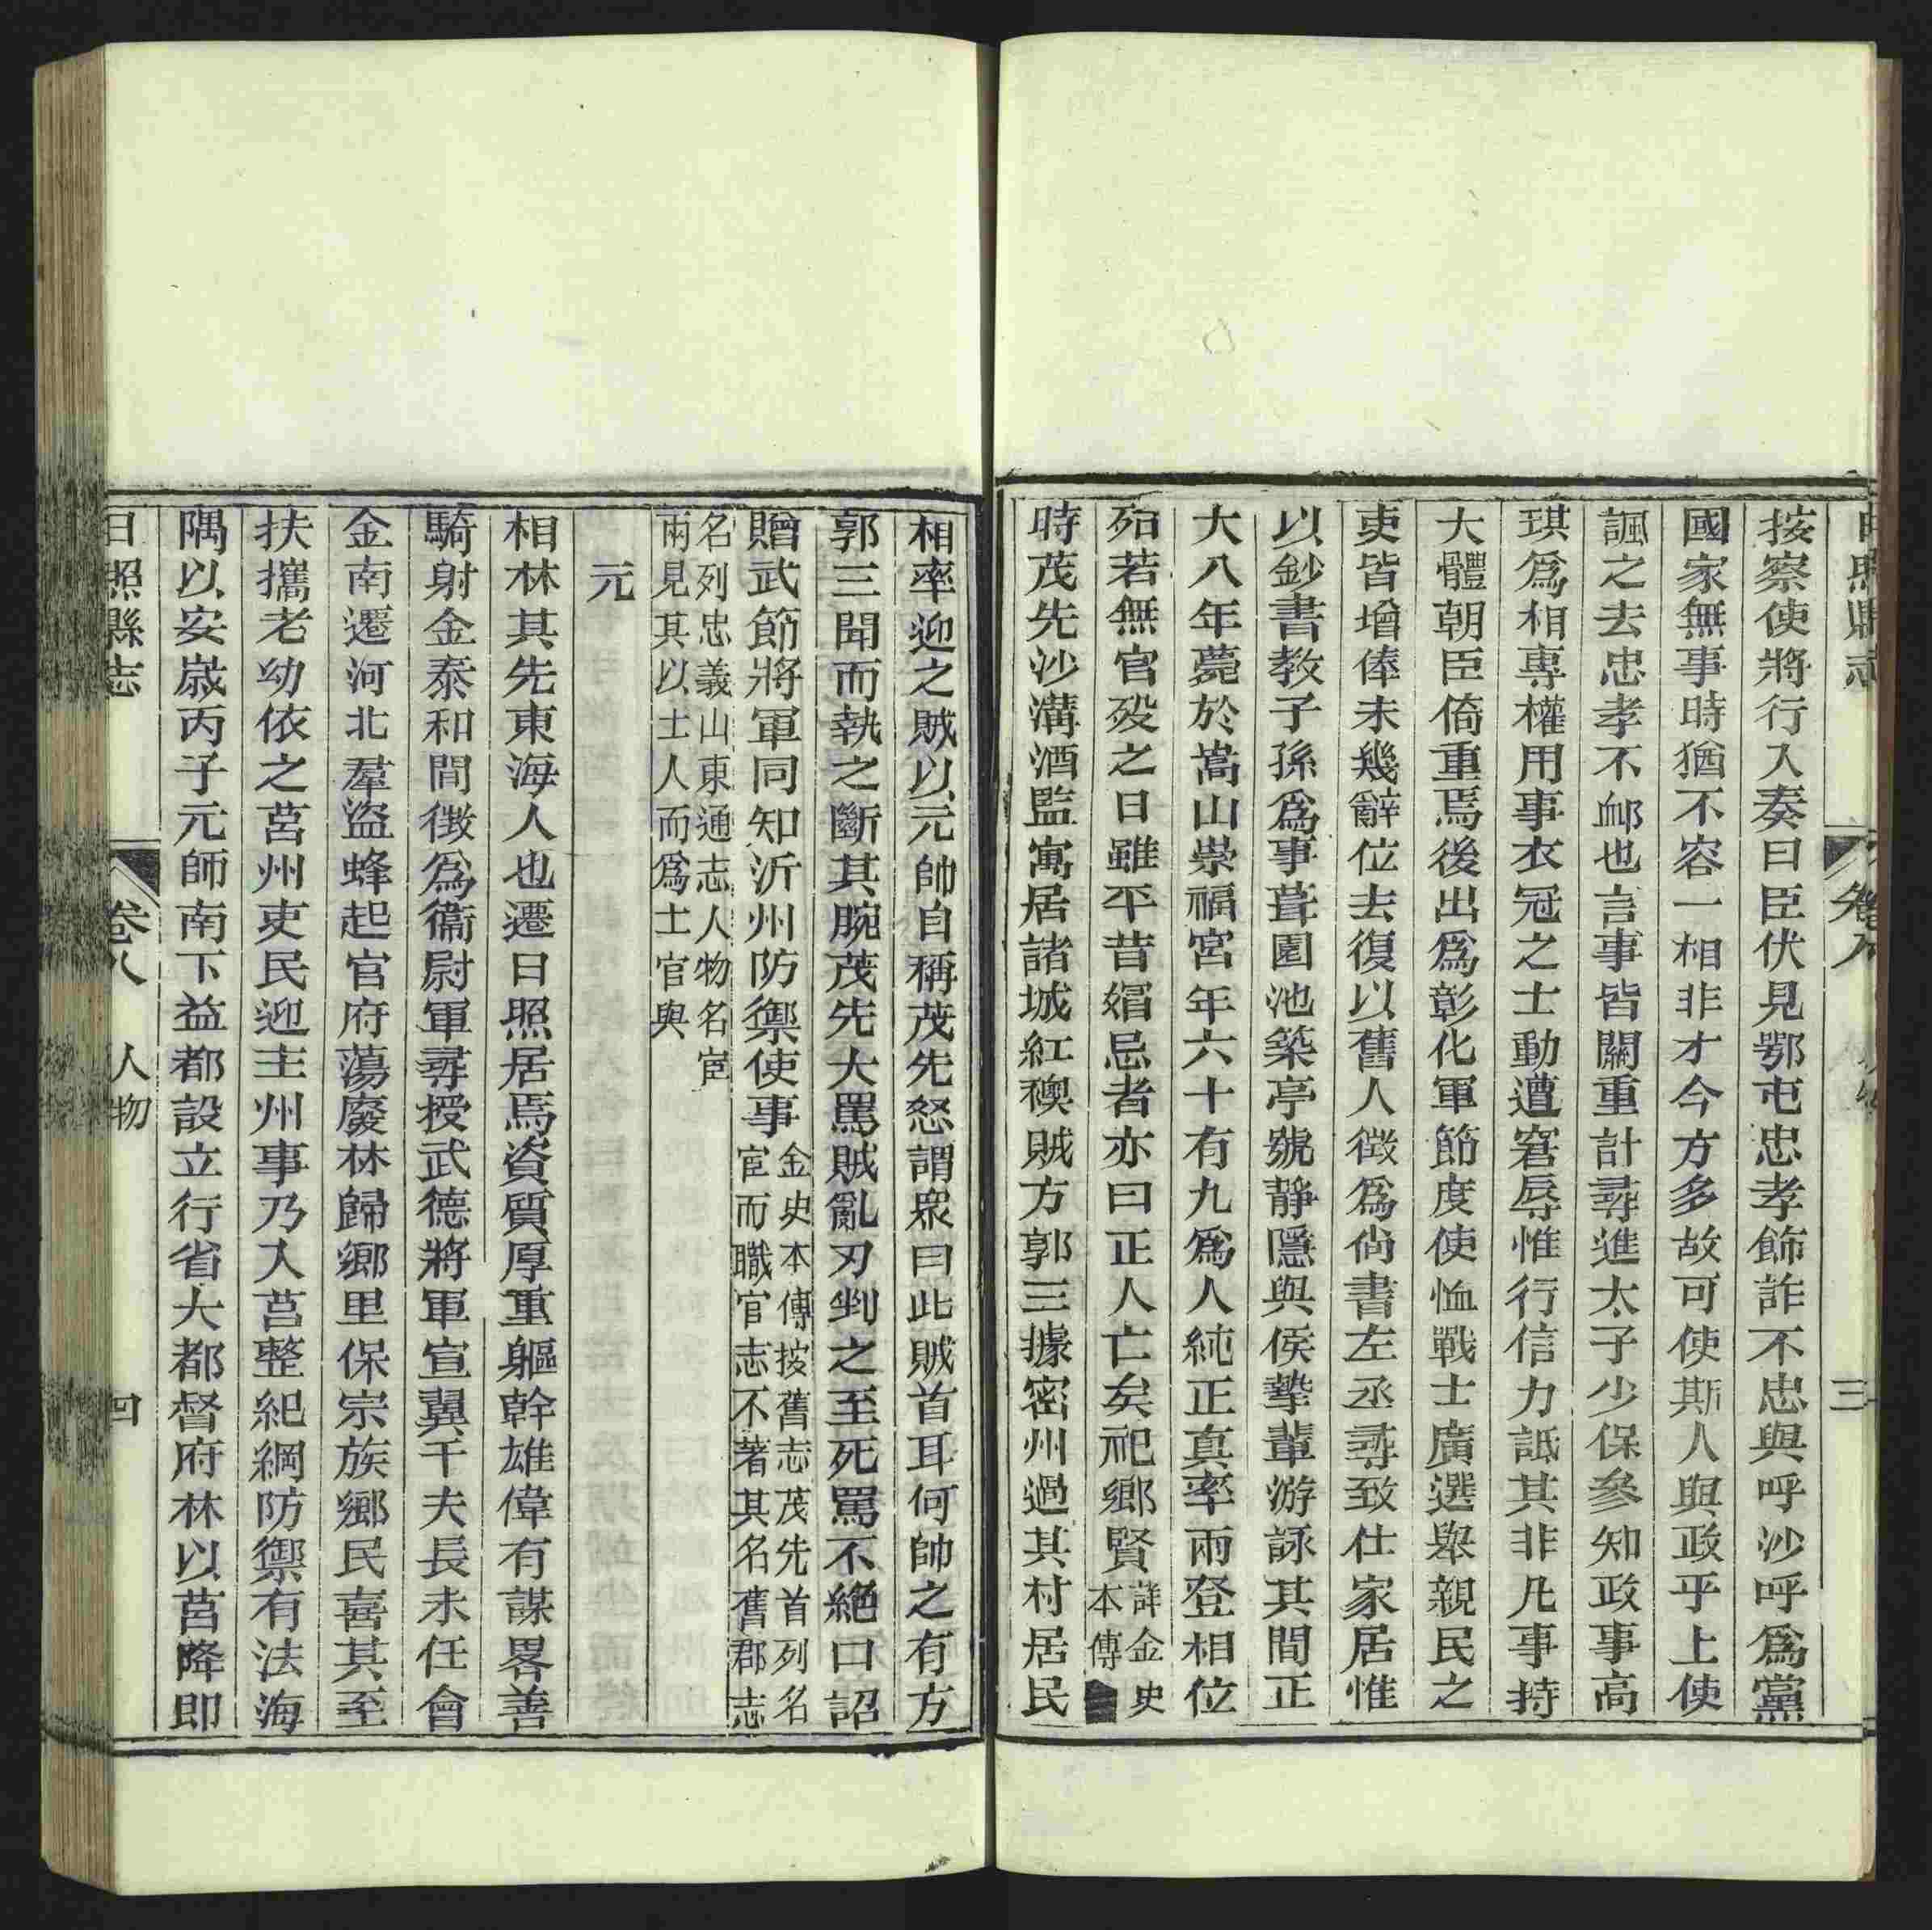 日照縣志 卷八 人物 三
按察使將行入奏曰臣伏見鄂屯忠孝飾詐不忠與呼沙呼爲黨
國家無事時猶不容一相非才今方多故可使斯人與政乎上使
諷之去忠孝不衈也言事皆關重計尋進太子少保參知政事高
琪爲相專權用事衣冠之士動遭窘辱惟行信力詆其非凡事持
大體朝臣倚重焉後出爲彰化軍節度使恤戰士廣選舉親民之
吏皆增俸未幾辭位去復以舊人徵爲尙書左丞尋致仕家居惟
以鈔書教子孫爲事葺園池築亭號靜隱與侯摯輩游詠其間正
大八年薨於嵩山崇福宮年六十有九爲人純正真率兩登相位
殆若無官歿之日雖平昔媢忌者亦曰正人亡矣祀鄉賢詳金史本傳
時茂先沙溝酒監寓居諸城紅襖賊方郭三據密州過其村居民
相率迎之賊以元帥自稱茂先怒謂眾曰此賊首耳何帥之有方
郭三聞而執之斷其腕茂先大罵賊亂刃剉之至死罵不絕口詔
贈武節將軍同知沂州防禦使事金史本傳按舊志茂先首列名宦而職官志不著其名舊郡志
名列忠義山東通志人物名宦兩見其以土人而爲土官與
元
相林其先東海人也遷日照居焉資質厚重軀幹雄偉有謀畧善
騎射金泰和間徵爲衞尉軍尋授武德將軍宣翼千夫長未任會
金南遷河北羣盜蜂起官府蕩廢林歸鄉里保宗族鄉民喜其至
扶攜老幼依之莒州吏民迎主州事乃入莒整紀綱防禦有法海
隅以安嵗丙子元師南下益都設立行省大都督府林以莒降即
日照縣志 卷八 人物 四